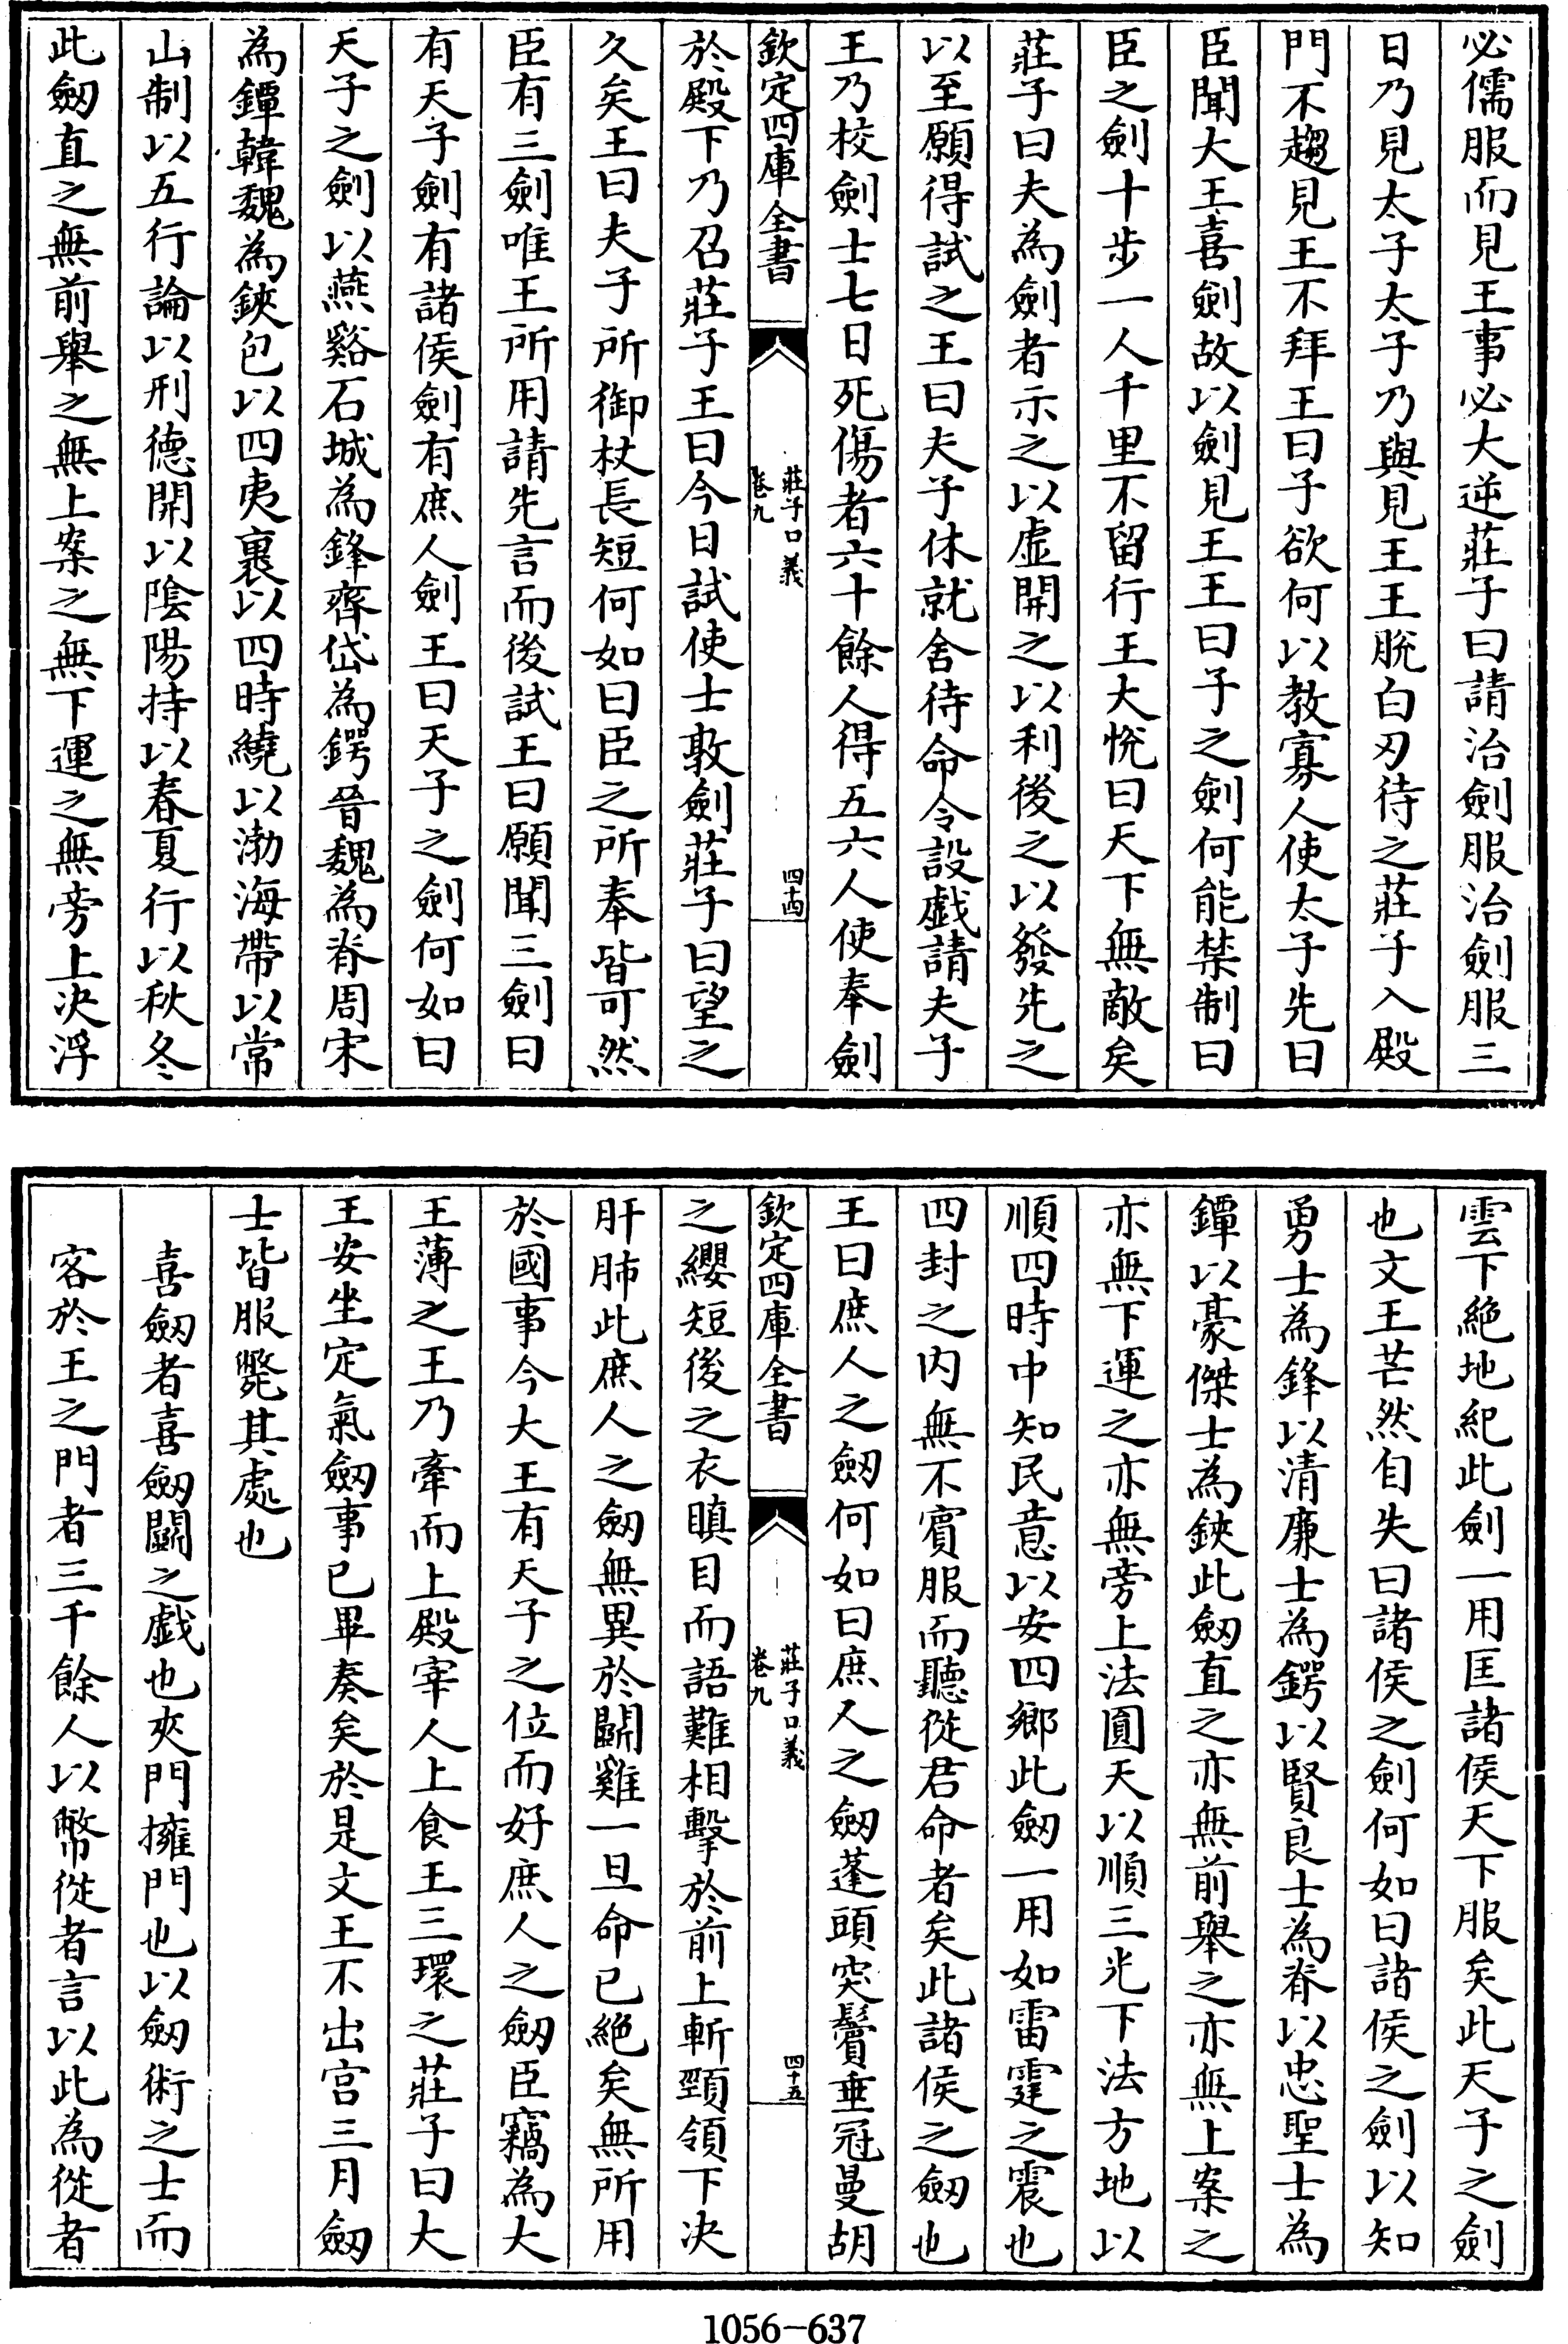 必儒服而見王事必大逆莊子曰請治劍服治劍服三
日乃見太子太子乃與見王王脫白刃待之莊子入殿
門不趨見王不拜王曰子欲何以教寡人使太子先曰
臣聞大王喜劍故以劍見王王曰子之劍何能禁制曰
臣之劍十步一人千里不留行王大悅曰天下無敵矣
莊子曰夫為劍者示之以虛開之以利後之以發先之
以至願得試之王曰夫子休就舍待命令設戲請夫子
王乃校劍士七日死傷者六十餘人得五六人使奉劍
欽定四庫全書
莊子口義
卷九
四十四
於殿下乃召莊子王曰今日試使士敦劍莊子曰望之
久矣王曰夫子所御杖長短何如曰臣之所奉皆可然
臣有三劍唯王所用請先言而後試王曰願聞三劍曰
有天子劍有諸侯劍有庶人劍王曰天子之劍何如曰
天子之劍以燕谿石城為鋒齊岱為鍔晉魏為脊周宋
為鐔韓魏為鋏包以四夷裹以四時繞以渤海帶以常
山制以五行論以刑德開以陰陽持以春夏行以秋冬
此劒直之無前舉之無上案之無下運之無旁上决浮
雲下絕地紀此劍一用匡諸侯天下服矣此天子之劍
也文王芒然自失曰諸侯之劍何如曰諸侯之劍以知
勇士為鋒以清廉士為鍔以賢良士為脊以忠聖士為
鐔以豪傑士為鋏此劒直之亦無前舉之亦無上案之
亦無下運之亦無旁上法圓天以順三光下法方地以
順四時中知民意以安四鄉此劒一用如雷霆之震也
四封之内無不賔服而聽從君命者矣此諸侯之劒也
王曰庶人之劒何如曰庶人之劒蓬頭突鬢垂冠曼胡
欽定四庫全書
莊子口義
卷九
四十五
之纓短後之衣瞋目而語難相擊於前上斬頸領下决
肝肺此庶人之劒無異於鬭雞一旦命已絕矣無所用
於國事今大王有天子之位而好庶人之劒臣竊為大
王薄之王乃牽而上殿宰人上食王三環之莊子曰大
王安坐定氣劒事已畢奏矣於是文王不出宫三月劒
士皆服斃其處也
喜劒者喜劒鬭之戲也夾門擁門也以劒術之士而
客於王之門者三千餘人以幣從者言以此為從者
1056-637